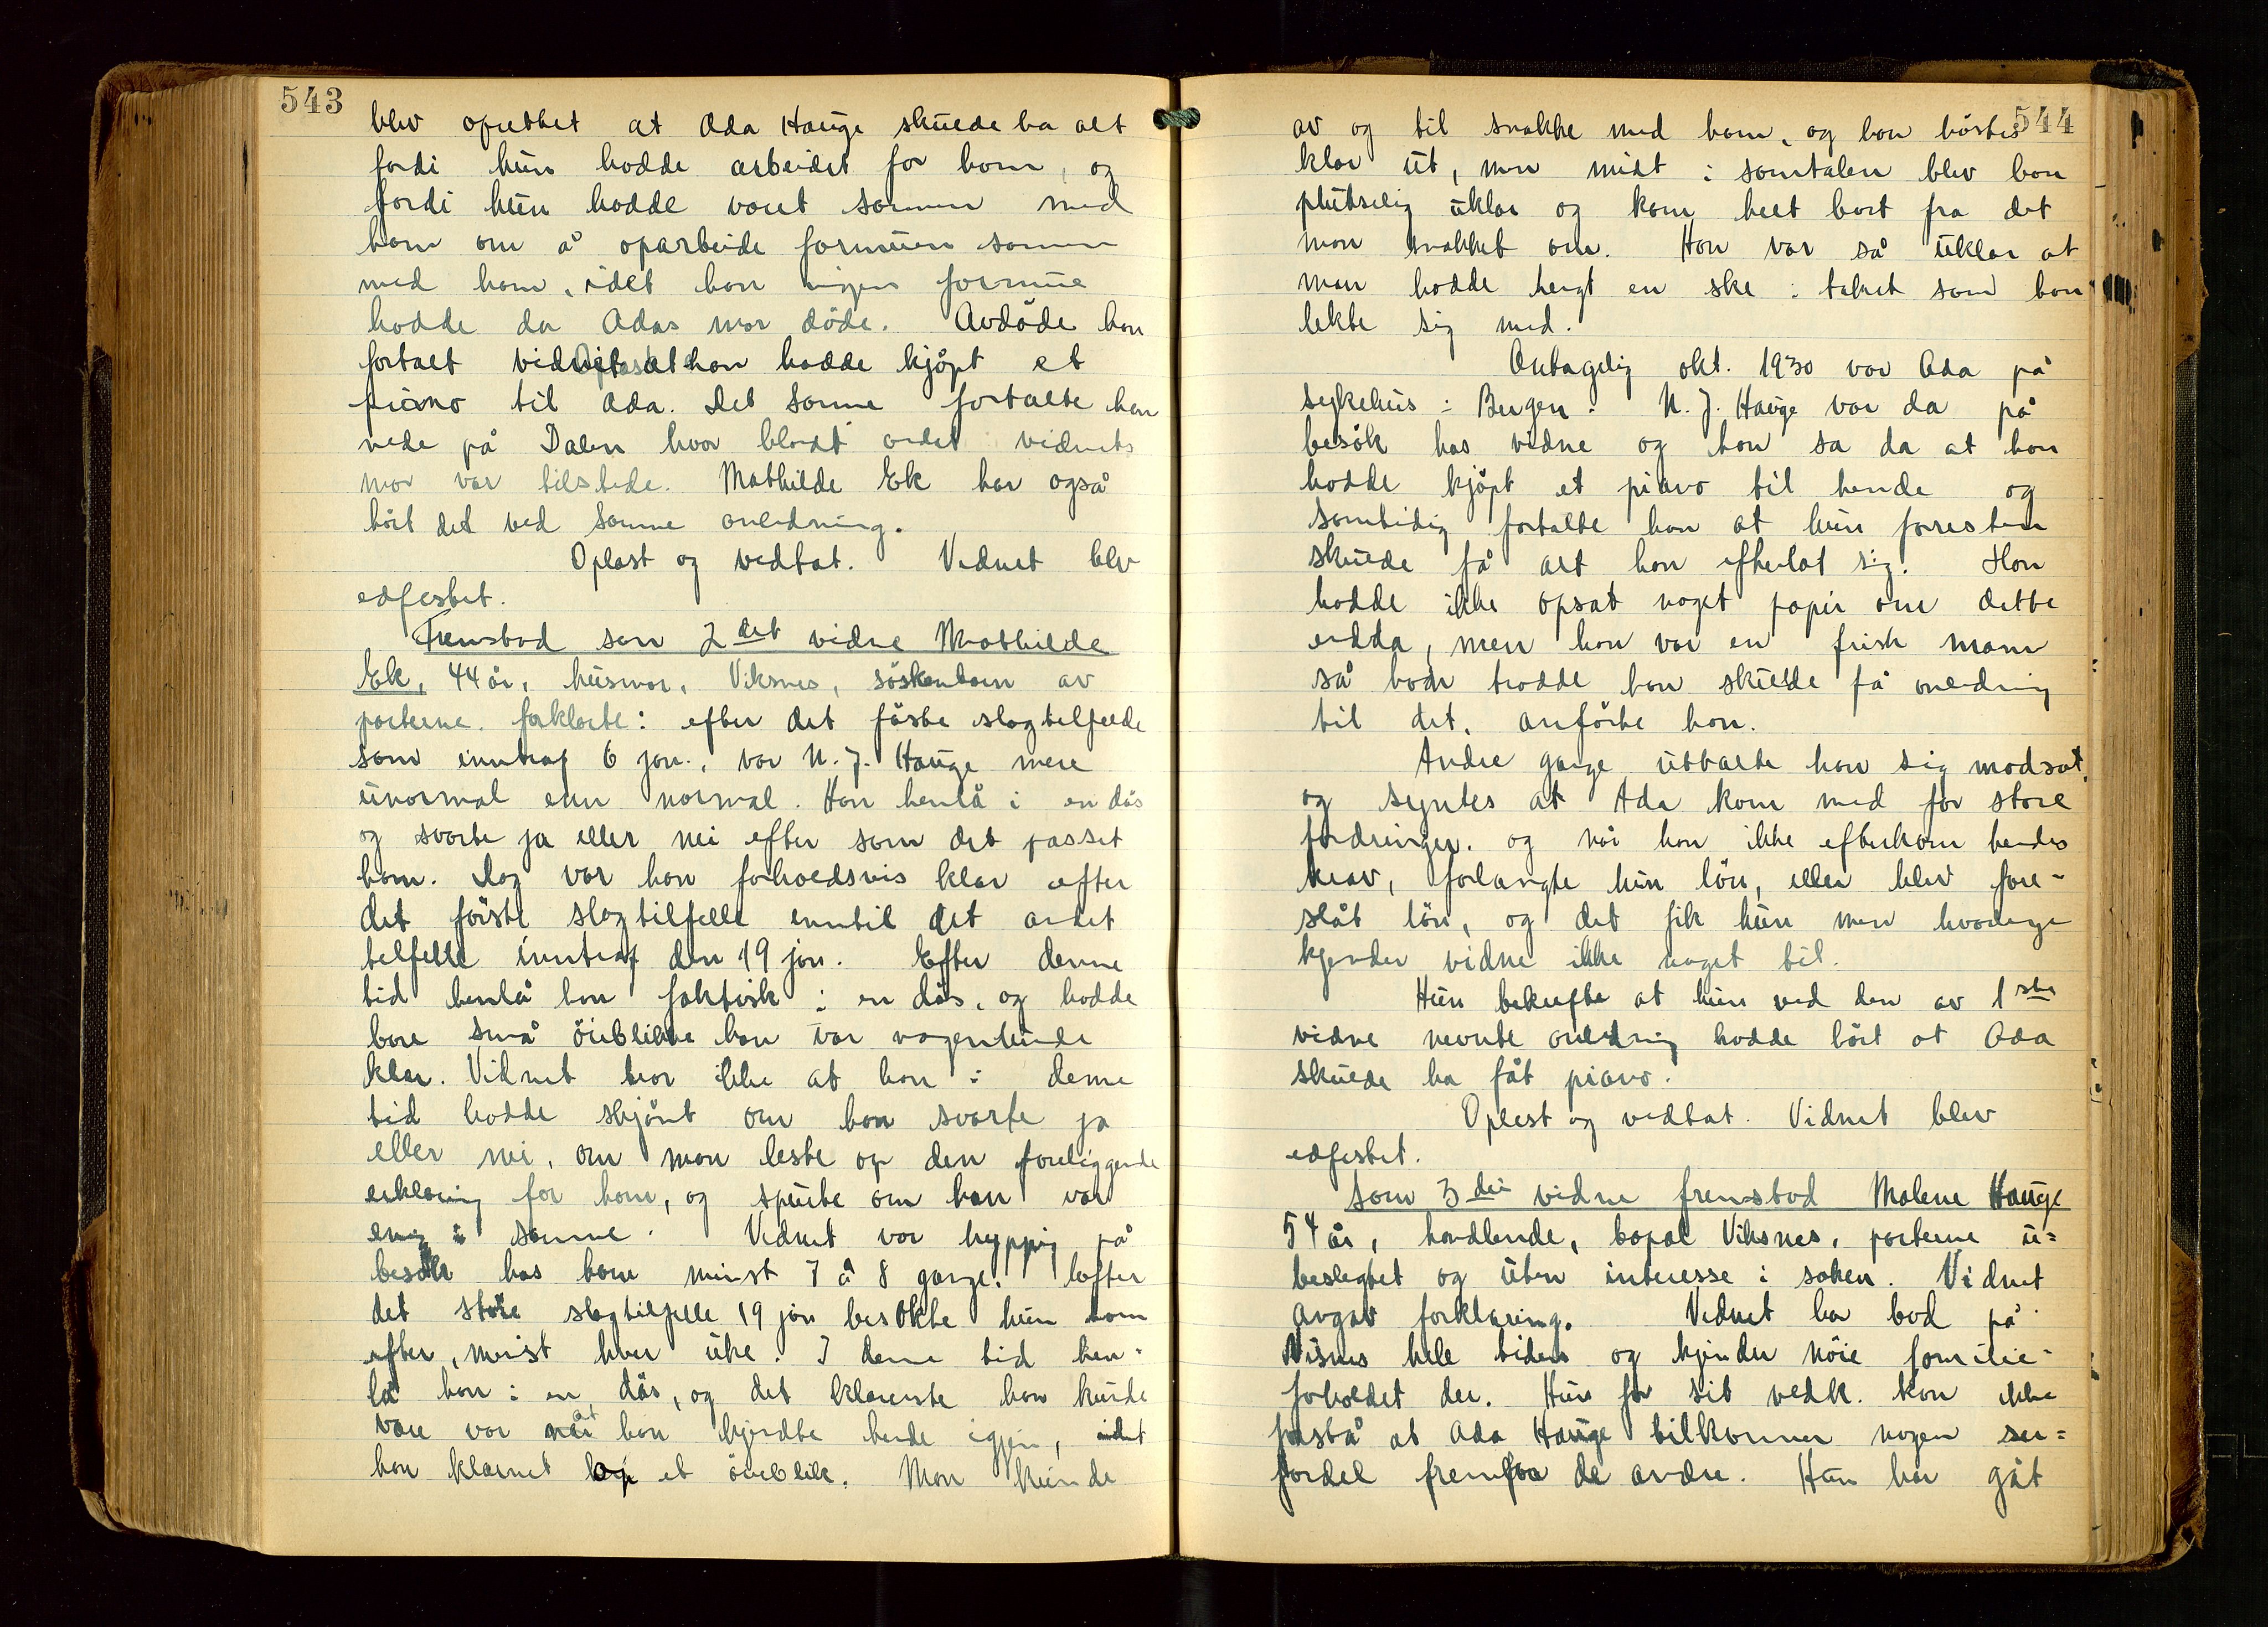 543
blev oprettet at Ada Hauge skulde ha alt
fordi hun hadde arbeidet for ham, og
fordi hun hadde været sammen med
ham om å oparbeide formuen sammen
med ham, idet han ingen formue
hadde da Adas mor døde. Avdøde har
fortalt vidnet at han hadde kjøpt et
piano til Ada. Det samme fortalte han
nede på Dalen hvor blandt andet vidnets
mor var tilstede. Mathilde Ek har også
hørt det ved samme anledning.
Oplæst og vedtat. Vidnet blev
edfæstet.
Fremstod som 2det vidne Mathilde
Ek, 44 år, husmor, Viksnes, søskenbarn av
parterne. forklarte: efter det første slagtilfælde
som inntraf 6 jan., var N. J. Hauge mere
unormal enn normal. Han henlå i en døs
og svarte ja eller nei efter som det passet
ham. Dog var han forholdsvis klar efter
det første slagtilfelle inntil det andet
tilfelle inntraf den 19 jan. Efter denne
tid henlå han faktisk i en døs, og hadde
bare små øieblikke han var nogenlunde
klar. Vidnet tror ikke at han i denne
tid hadde skjønt om han svarte ja
eller nei, om man leste op den foreliggende
erklæring for ham, og spurte om han var
enig i samme. Vidnet var hyppig på
besøk hos ham minst 7 à 8 gange. Efter
det store slagtilfelle 19 jan besøkte hun ham
efter, minst hver uke. I denne tid hen-
lå han i en døs, og det klareste han kunde
være var når at han kjendte hende igjen, idet
han klarnet op et øieblik. Man kunde
544
av og til snakke med ham, og han hørtes
klar ut, men midt i samtalen blev han
plutselig uklar og kom helt bort fra det
man snakket om. Han var så uklar at
man hadde hengt en ske i taket som han
lekte sig med.
Antagelig okt. 1930 var Ada på
sykehus i Bergen. N. J. Hauge var da på
besøk hos vidne og han sa da at han
hadde kjøpt et piano til hende og
samtidig fortalte han at hun forresten
skulde få alt han efterlot sig. Han
hadde ikke opsat noget papir om dette
endda, men han var en frisk mann
så han trodde han skulde få anledning
til det, anførte han.
Andre gange uttalte han sig modsat,
og syntes at Ada kom med for store
fordringer. og når han ikke efterkom hendes
krav, forlangte hun løn, eller blev fore-
slåt løn, og det fik hun men hvormange
kjender vidne ikke noget til.
Hun bekræfter at hun ved den av 1ste
vidne nevnte anledning hadde hørt at Ada
skulde ha fåt piano.
Oplest og vedtat. Vidnet blev
edfestet.
Som 3die vidne fremstod Malene Hauge
54 år, handlende, bopæl Viksnes, parterne u=
beslegtet og uten interesse i saken. Vidnet
avgav forklaring. Vidnet har bod på
Visnes hele tiden og kjender nøie familie-
forholdet der. Hun for sit vedk. kan ikke
påstå at Ada Hauge tilkommer nogen sær=
fordel fremfor de andre. Hun har gåt